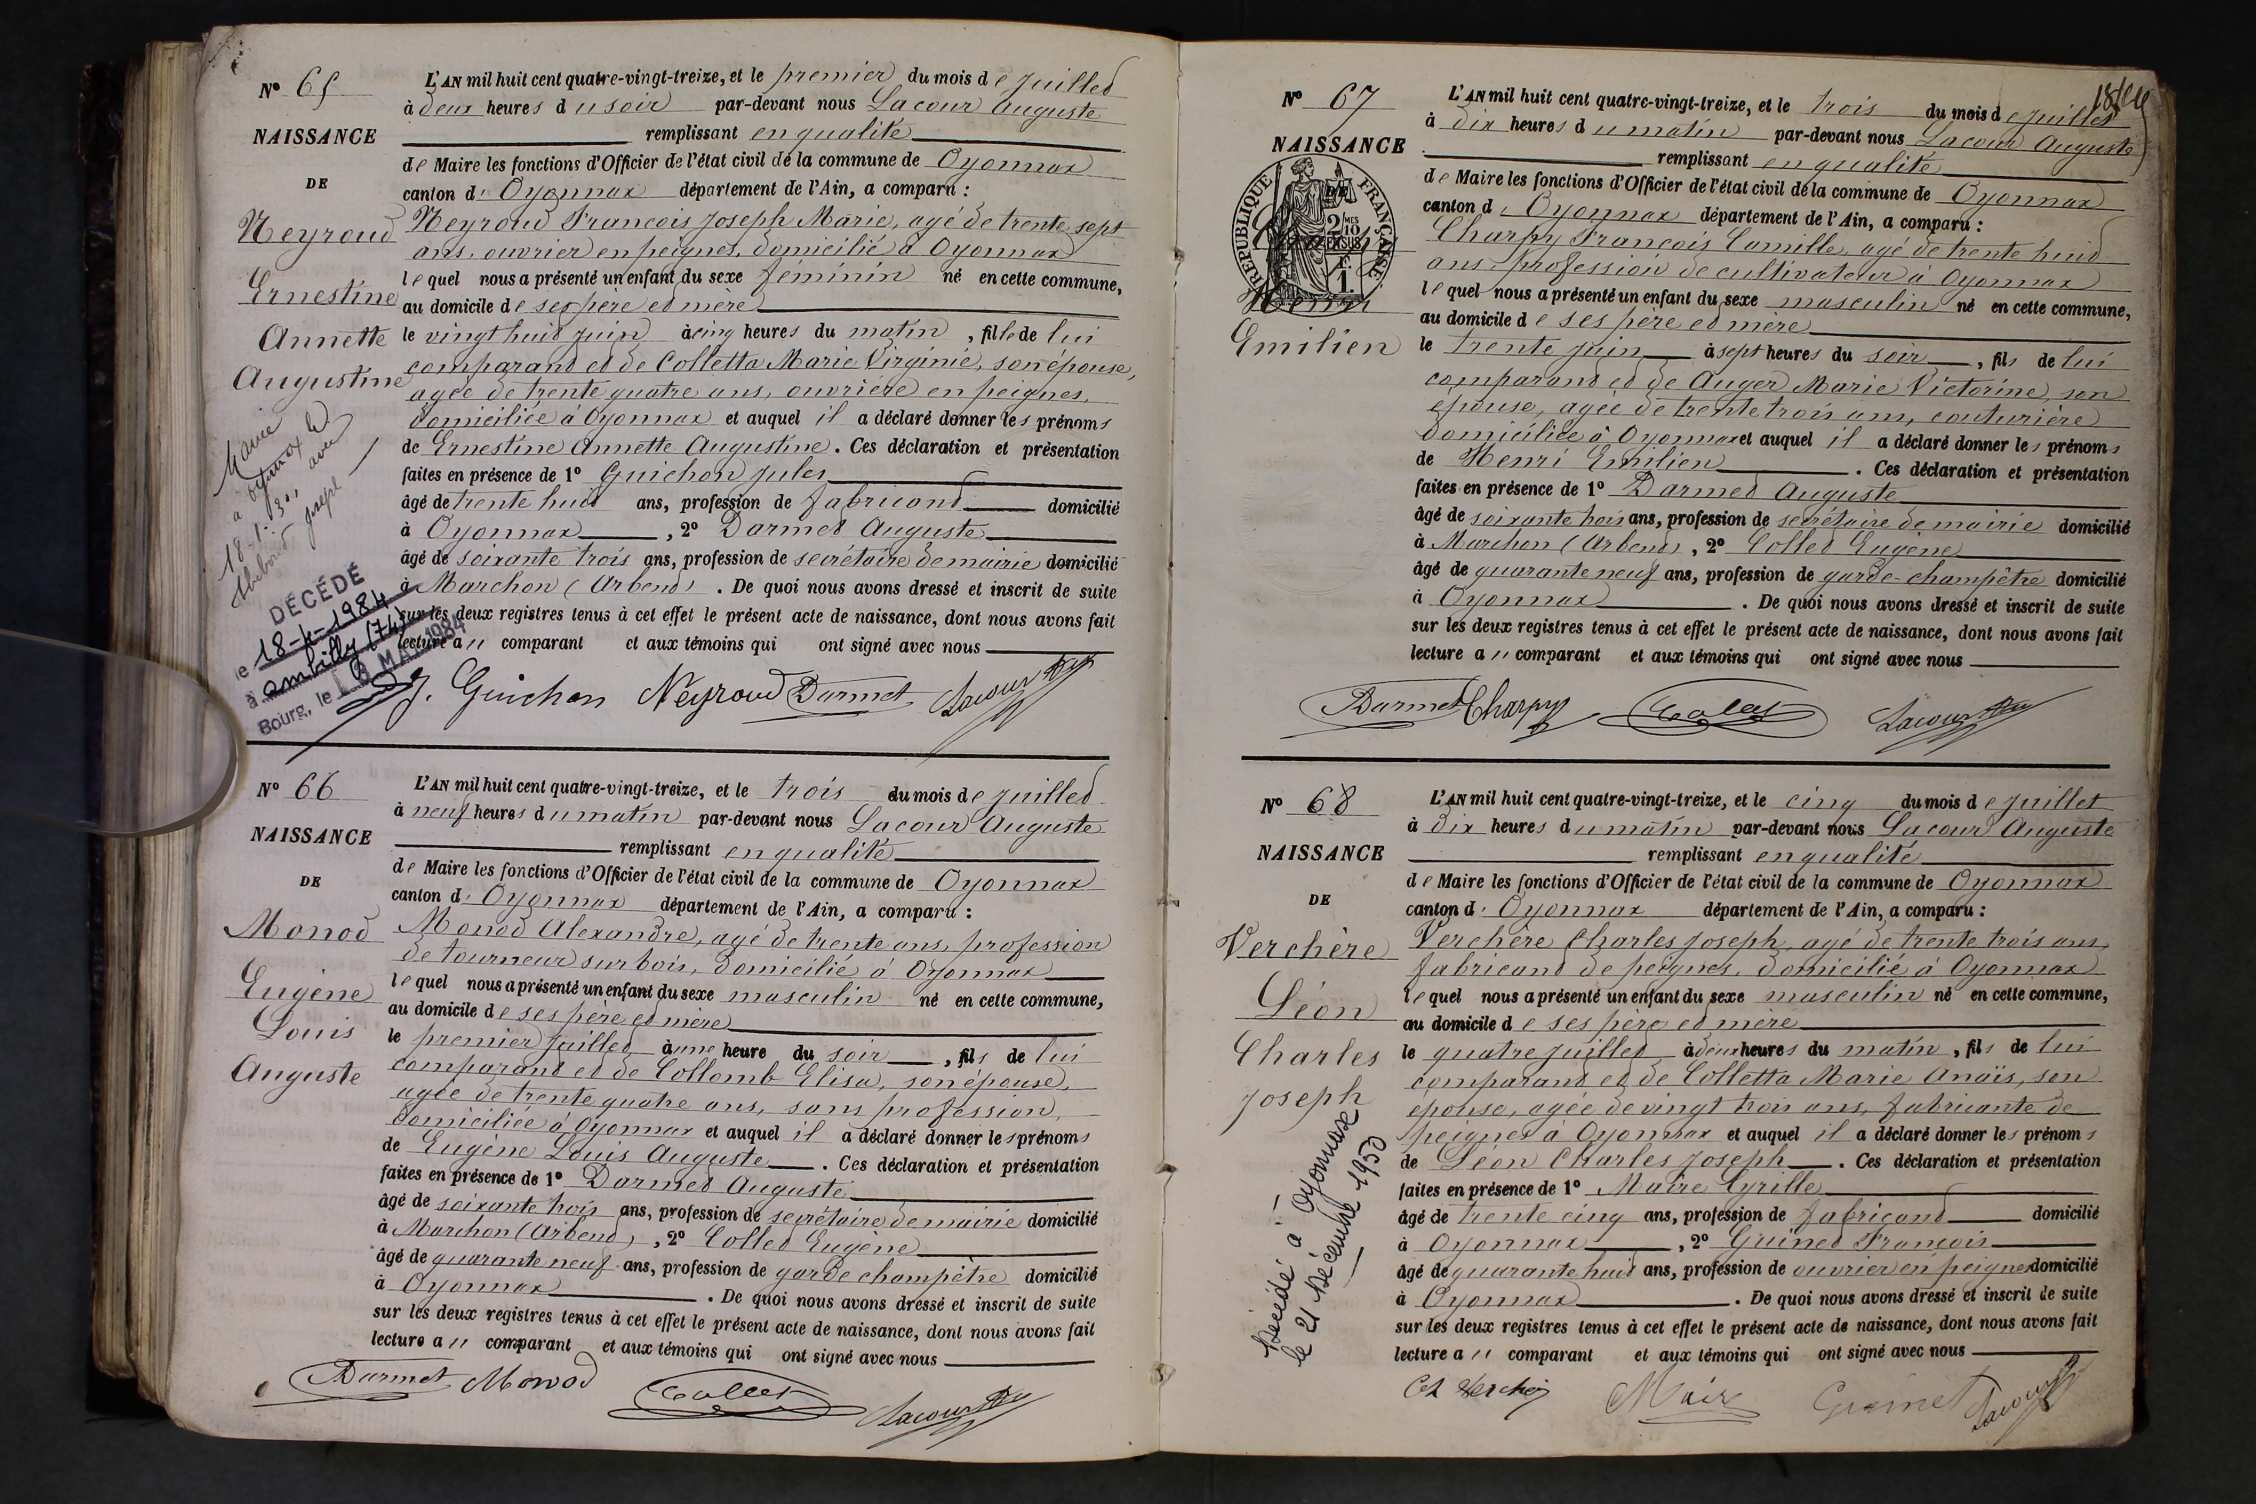 Nº 65
NAISSANCE
DE
Neyroud
Ernestine
Annette
Augustine
Marié
à Oyonnax le
18-1-30, avec
joseph
DÉCÉDÉ
le 18-4-1984
à ambilly (74)
Bourg, le MAI 1984
L'AN mil huit cent quatre-vingt-treize, et le premier du mois de juillet
à deux heures du soir par-devant nous Lacour Auguste
remplissant en qualité
de Maire les fonctions d'Officier de l'état civil de la commune de Oyonnax
canton d' Oyonnax département de l'Ain, a comparu :
Neyroud François Joseph Marie, agé de trente sept
ans, ouvrier en peignes, domicilié à Oyonnax
lequel nous a présenté un enfant du sexe féminin né en cette commune,
au domicile de ses père et mère
le vingt huit juin à cinq heures du matin, fille de lui
comparant et de Colletta Marie Virginie, son épouse,
agée de trente quatre ans, ouvrière en peignes,
domiciliée à Oyonnax et auquel il a déclaré donner les prénoms
de Ernestine Annette Augustine. Ces déclaration et présentation
faites en présence de 1º Guichon Jules
âgé de trente huit ans, profession de fabricant domicilié
à Oyonnax, 2º Darmet Auguste
âgé de soixante trois ans, profession de secrétaire de mairie domicilié
à Marchon (Arbent). De quoi nous avons dressé et inscrit de suite
sur les deux registres tenus à cet effet le présent acte de naissance, dont nous avons fait
lecture au comparant et aux témoins qui ont signé avec nous
J. Guichon Neyroud Darmet Lacour
Nº 66
NAISSANCE
DE
Monod
Eugène
Louis
Auguste
L'AN mil huit cent quatre-vingt-treize, et le trois du mois de juillet
à neuf heures du matin par-devant nous Lacour Auguste
remplissant en qualité
de Maire les fonctions d'Officier de l'état civil de la commune de Oyonnax
canton d' Oyonnax département de l'Ain, a comparu :
Monod Alexandre, agé de trente ans, profession
de tourneur sur bois, domicilié à Oyonnax
lequel nous a présenté un enfant du sexe masculin né en cette commune,
au domicile de ses père et mère
le premier juillet à une heure du soir, fils de lui
comparant et de Collomb Elisa, son épouse,
agée de trente quatre ans, sans profession,
domiciliée à Oyonnax et auquel il a déclaré donner les prénoms
de Eugène Louis Auguste. Ces déclaration et présentation
faites en présence de 1º Darmet Auguste
âgé de soixante trois ans, profession de secrétaire de mairie domicilié
à Marchon (Arbent), 2º Collet Eugène
âgé de quarante neuf ans, profession de garde champêtre domicilié
à Oyonnax. De quoi nous avons dressé et inscrit de suite
sur les deux registres tenus à cet effet le présent acte de naissance, dont nous avons fait
lecture au comparant et aux témoins qui ont signé avec nous
Darmet Monod Collet Lacour
Nº 67
NAISSANCE
DE
RÉPUBLIQUE FRANÇAISE
2/10 MES
EN SUS
F.
1.
Henri
Emilien
L'AN mil huit cent quatre-vingt-treize, et le trois du mois de juillet
à dix heures du matin par-devant nous Lacour Auguste
remplissant en qualité
de Maire les fonctions d'Officier de l'état civil de la commune de Oyonnax
canton d' Oyonnax département de l'Ain, a comparu :
Charpy François Camille, agé de trente huit
ans, profession de cultivateur à Oyonnax
lequel nous a présenté un enfant du sexe masculin né en cette commune,
au domicile de ses père et mère
le trente juin à sept heures du soir, fils de lui
comparant et de Auger Marie Victorine, son
épouse, agée de trente trois ans, couturière
domiciliée à Oyonnax et auquel il a déclaré donner les prénoms
de Henri Emilien. Ces déclaration et présentation
faites en présence de 1º Darmet Auguste
âgé de soixante trois ans, profession de secrétaire de mairie domicilié
à Marchon (Arbent), 2º Collet Eugène
âgé de quarante neuf ans, profession de garde-champêtre domicilié
à Oyonnax. De quoi nous avons dressé et inscrit de suite
sur les deux registres tenus à cet effet le présent acte de naissance, dont nous avons fait
lecture au comparant et aux témoins qui ont signé avec nous
Darmet Charpy Collet Lacour
Nº 68
NAISSANCE
DE
Verchère
Léon
Charles
Joseph
Décédé à Oyonnax
le 21 Décembre 1950
L'AN mil huit cent quatre-vingt-treize, et le cinq du mois de juillet
à dix heures du matin par-devant nous Lacour Auguste
remplissant en qualité
de Maire les fonctions d'Officier de l'état civil de la commune de Oyonnax
canton d' Oyonnax département de l'Ain, a comparu :
Verchère Charles Joseph, agé de trente trois ans,
fabricant de peignes, domicilié à Oyonnax
lequel nous a présenté un enfant du sexe masculin né en cette commune,
au domicile de ses père et mère
le quatre juillet à deux heures du matin, fils de lui
comparant et de Colletta Marie Anaïs, son
épouse, agée de vingt trois ans, fabricante de
peignes à Oyonnax et auquel il a déclaré donner les prénoms
de Léon Charles Joseph. Ces déclaration et présentation
faites en présence de 1º Maire Cyrille
âgé de trente cinq ans, profession de fabricant domicilié
à Oyonnax, 2º Guinet François
âgé de quarante huit ans, profession de ouvrier en peignes domicilié
à Oyonnax. De quoi nous avons dressé et inscrit de suite
sur les deux registres tenus à cet effet le présent acte de naissance, dont nous avons fait
lecture au comparant et aux témoins qui ont signé avec nous
Ch Verchère Maire Guinet Lacour